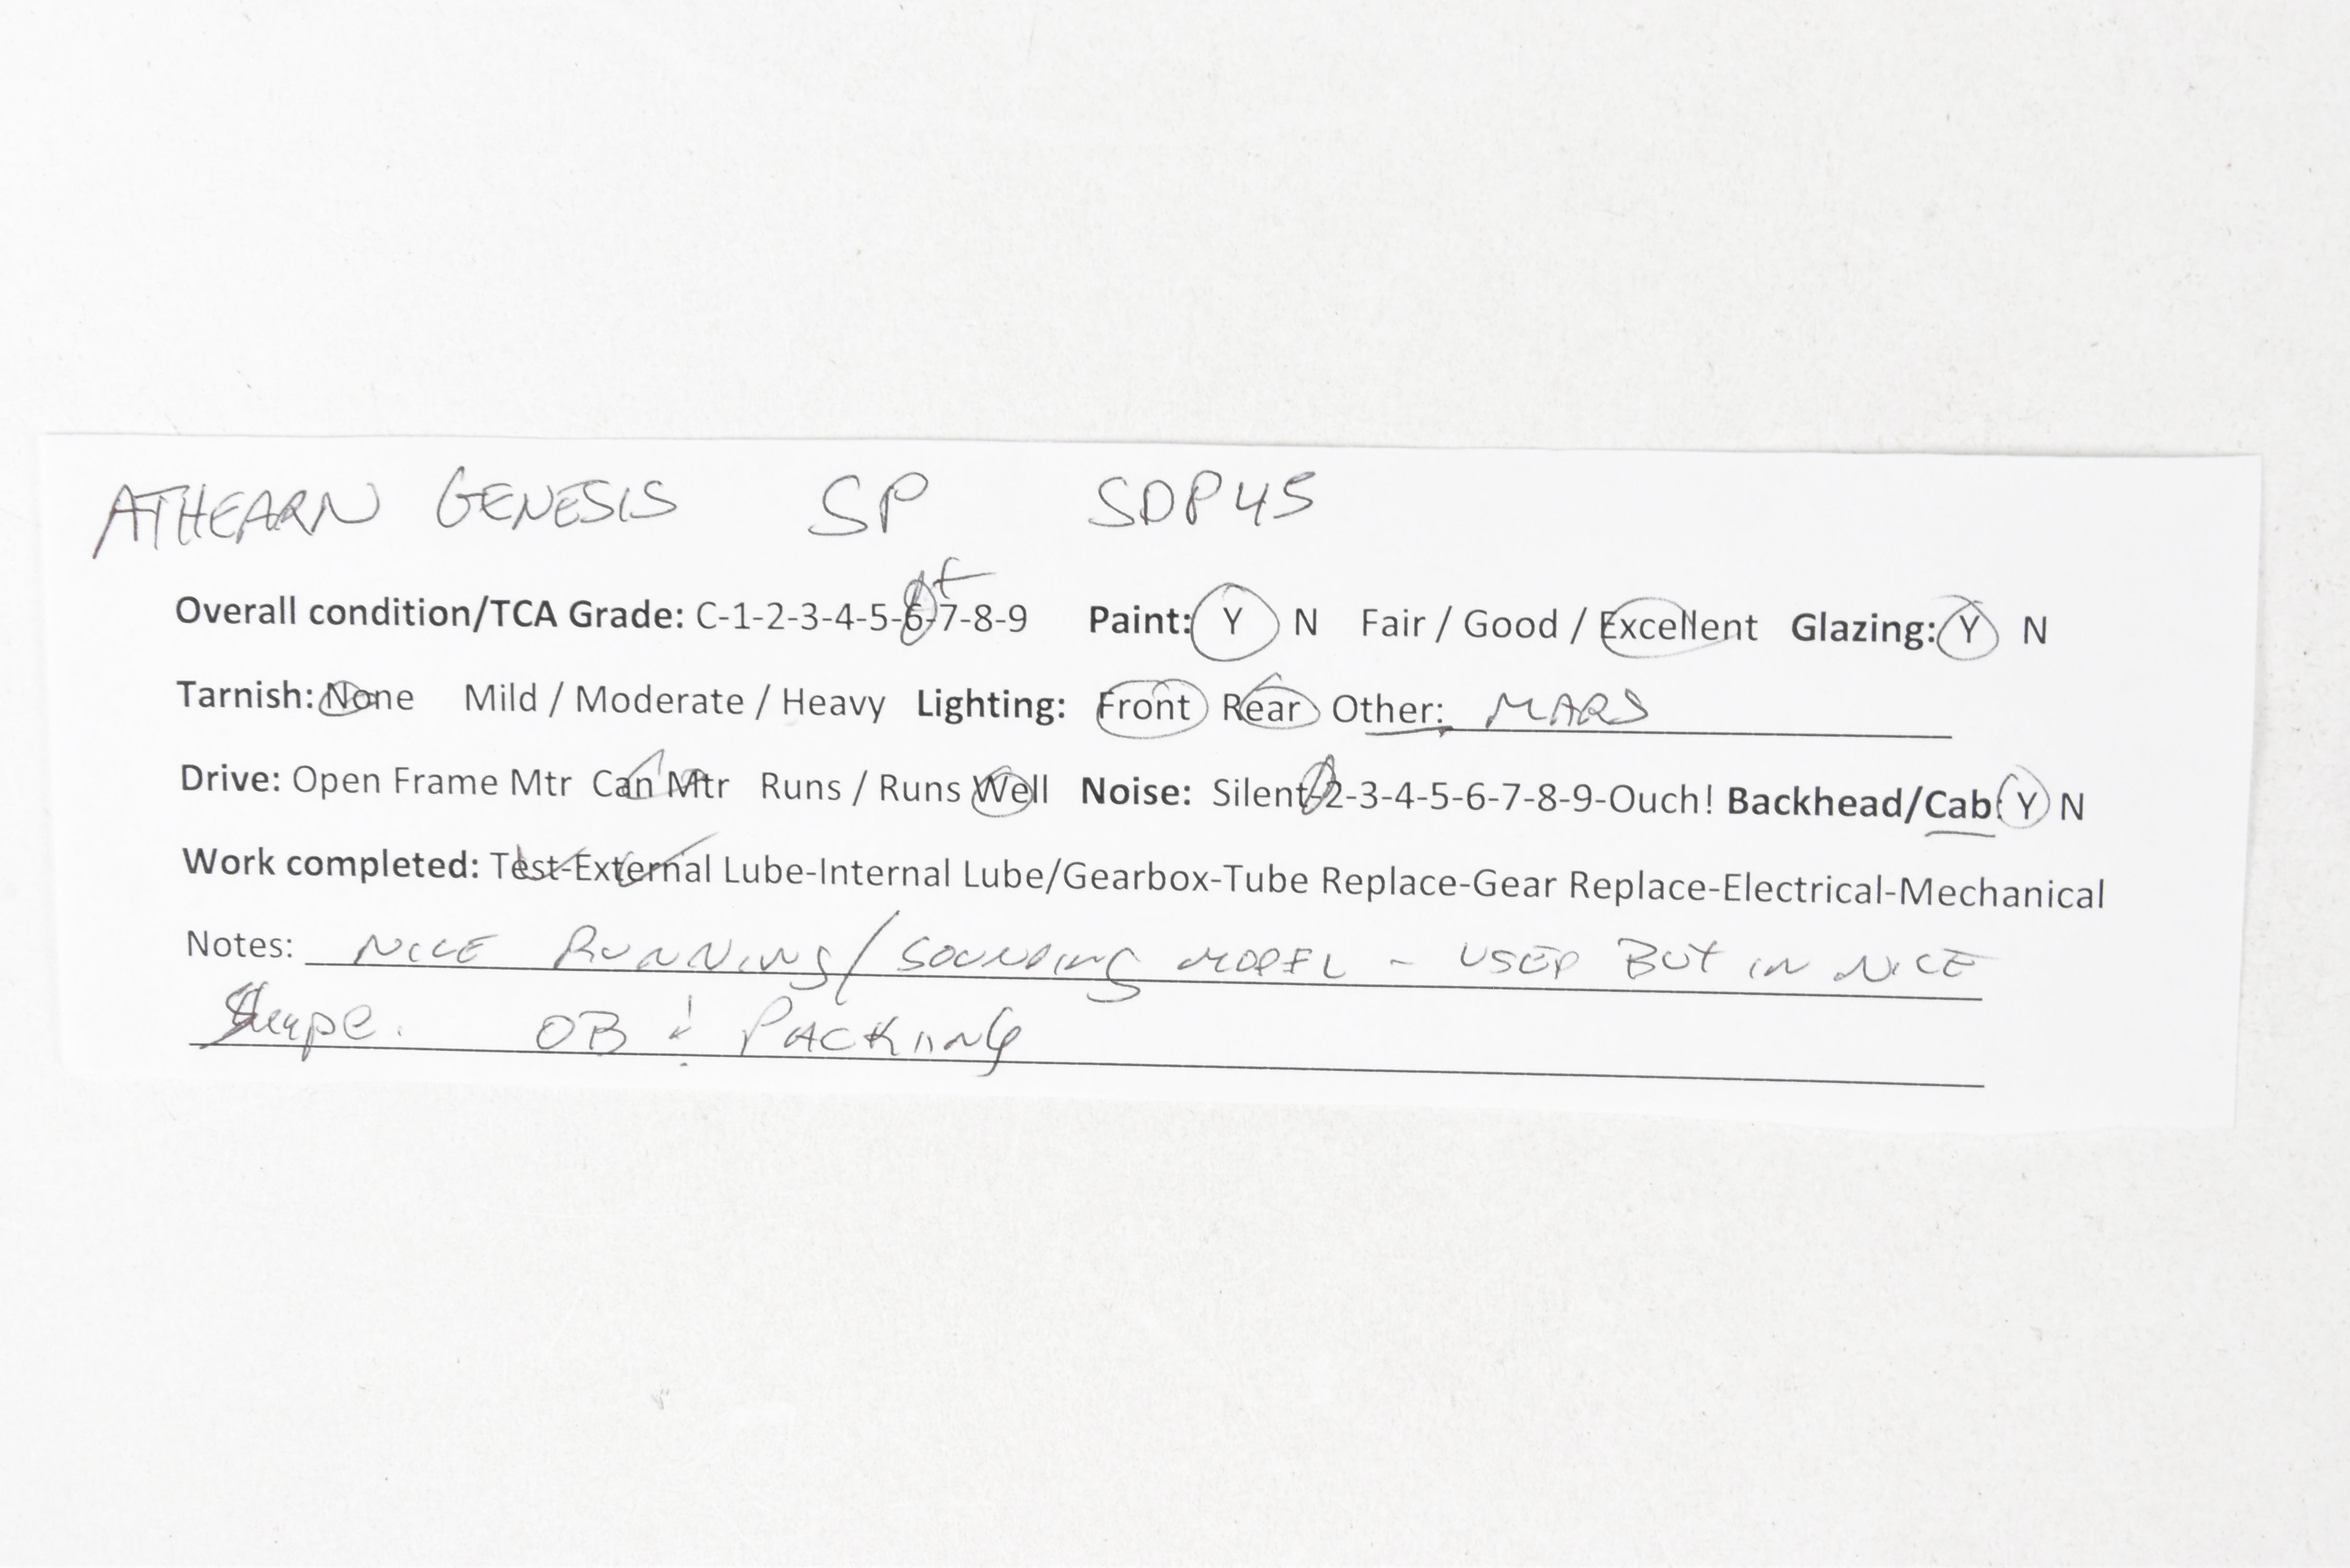 ATHEARN GENESIS SP SDP45
Overall condition/TCA Grade: C-1-2-3-4-5-6-7-8-9 Paint: Y N Fair / Good / Excellent Glazing: Y N
Tarnish: None Mild / Moderate / Heavy Lighting: Front Rear Other: MARS
Drive: Open Frame Mtr Can Mtr Runs / Runs Well Noise: Silent 2-3-4-5-6-7-8-9-Ouch! Backhead/Cab: Y N
Work completed: Test-External Lube-Internal Lube/Gearbox-Tube Replace-Gear Replace-Electrical-Mechanical
Notes: NICE RUNNING/SOUNDING MODEL - USED BUT IN NICE
Shape. OB & PACKING